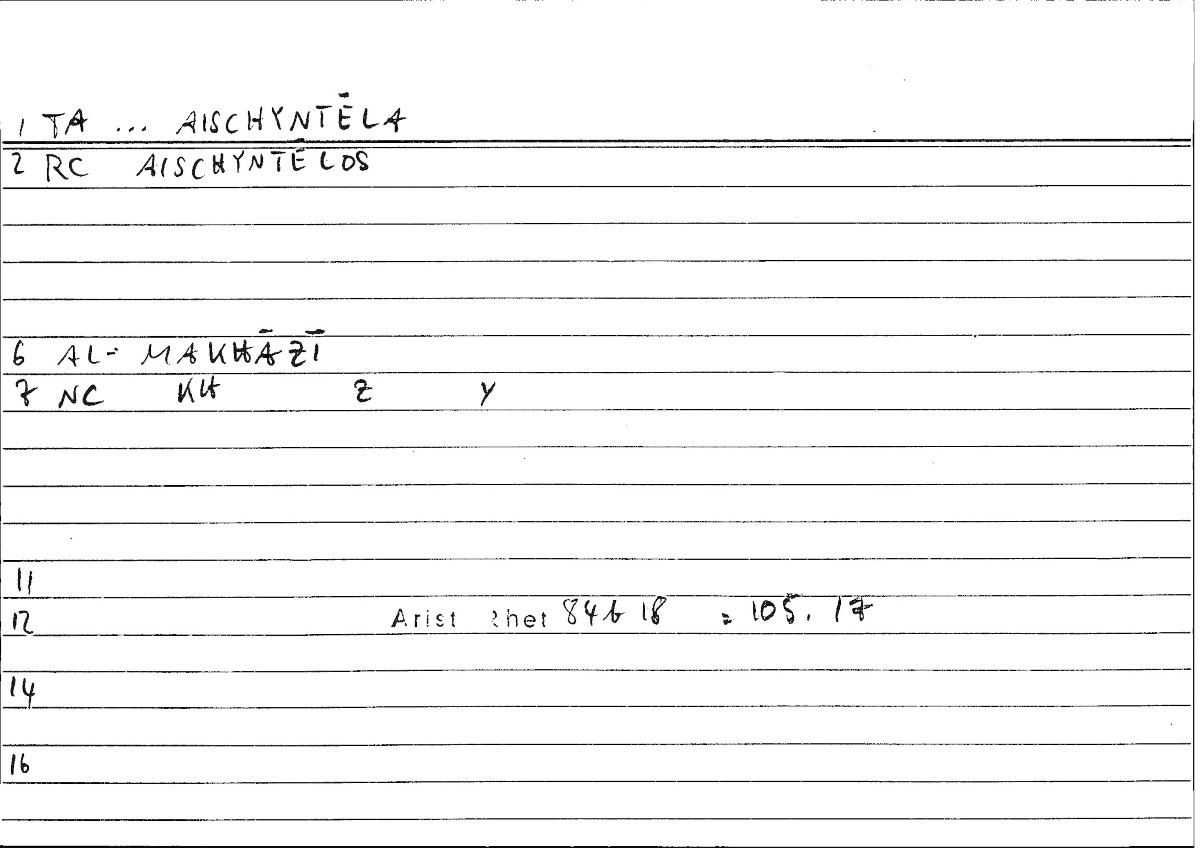 1 TA ... AISCHYNTĒLA
2 RC AISCHYNTĒLOS
6 AL- MAKHĀZĪ
7 NC KH Z Y
11
12 Arist Rhet 84b 18 = 105.17
14
16